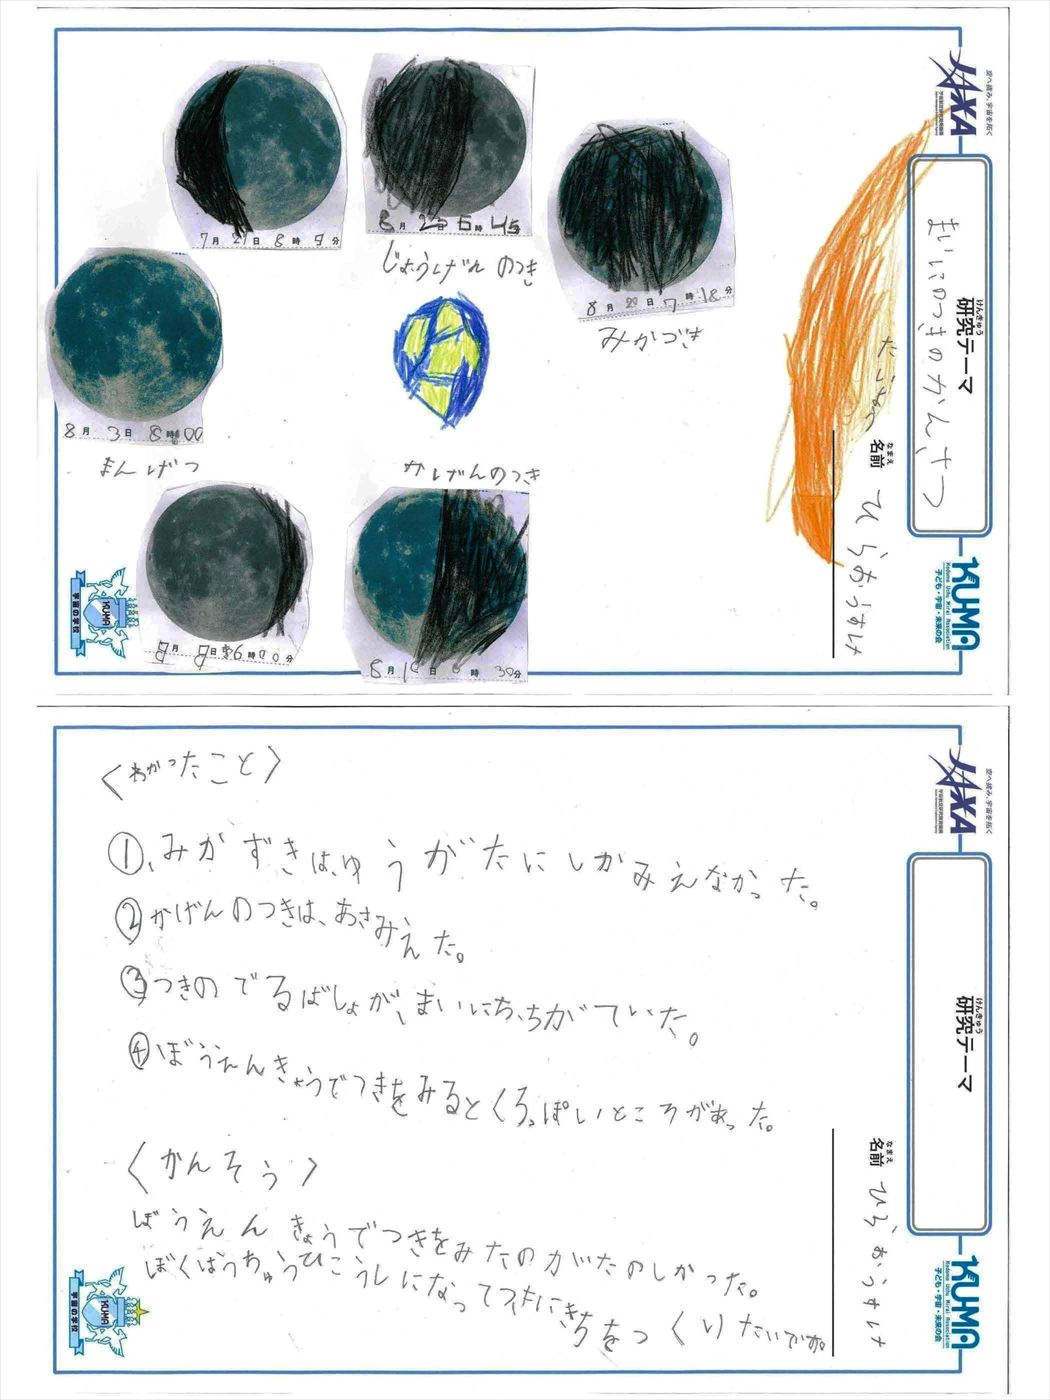 空へ挑み、宇宙を拓く
JAXA
宇宙航空研究開発機構
けんきゅう
研究テーマ
まいにちのつきのかんさつ
なまえ
名前
ひらおうすけ
KUMA
Kodomo Uchu Mirai Association
子ども・宇宙・未来の会
7月27日8時5分
8月 日6 45
じょうげんのつき
8月 日7時18分
みかづき
8月3日8時00
まんげつ
かげんのつき
月 日 6時00分
8月 日 時30分
KUMA
宇宙の学校
空へ挑み、宇宙を拓く
JAXA
けんきゅう
研究テーマ
なまえ
名前
ひらおうすけ
KUMA
Kodomo Uchu Mirai Association
子ども・宇宙・未来の会
〈わかったこと〉
①、みかずきは、ゆうがたにしかみえなかった。
②かげんのつきは、あさみえた。
③つきのでるばしょが、まいにち、ちがていた。
④ぼうえんきょうでつきをみるとくろっぽいところがあった。
〈かんそう〉
ぼうえんきょうでつきをみたのがたのしかった。
ぼくはうちゅうひこうしになってつきにきちをつくりたいです。
KUMA
宇宙の学校